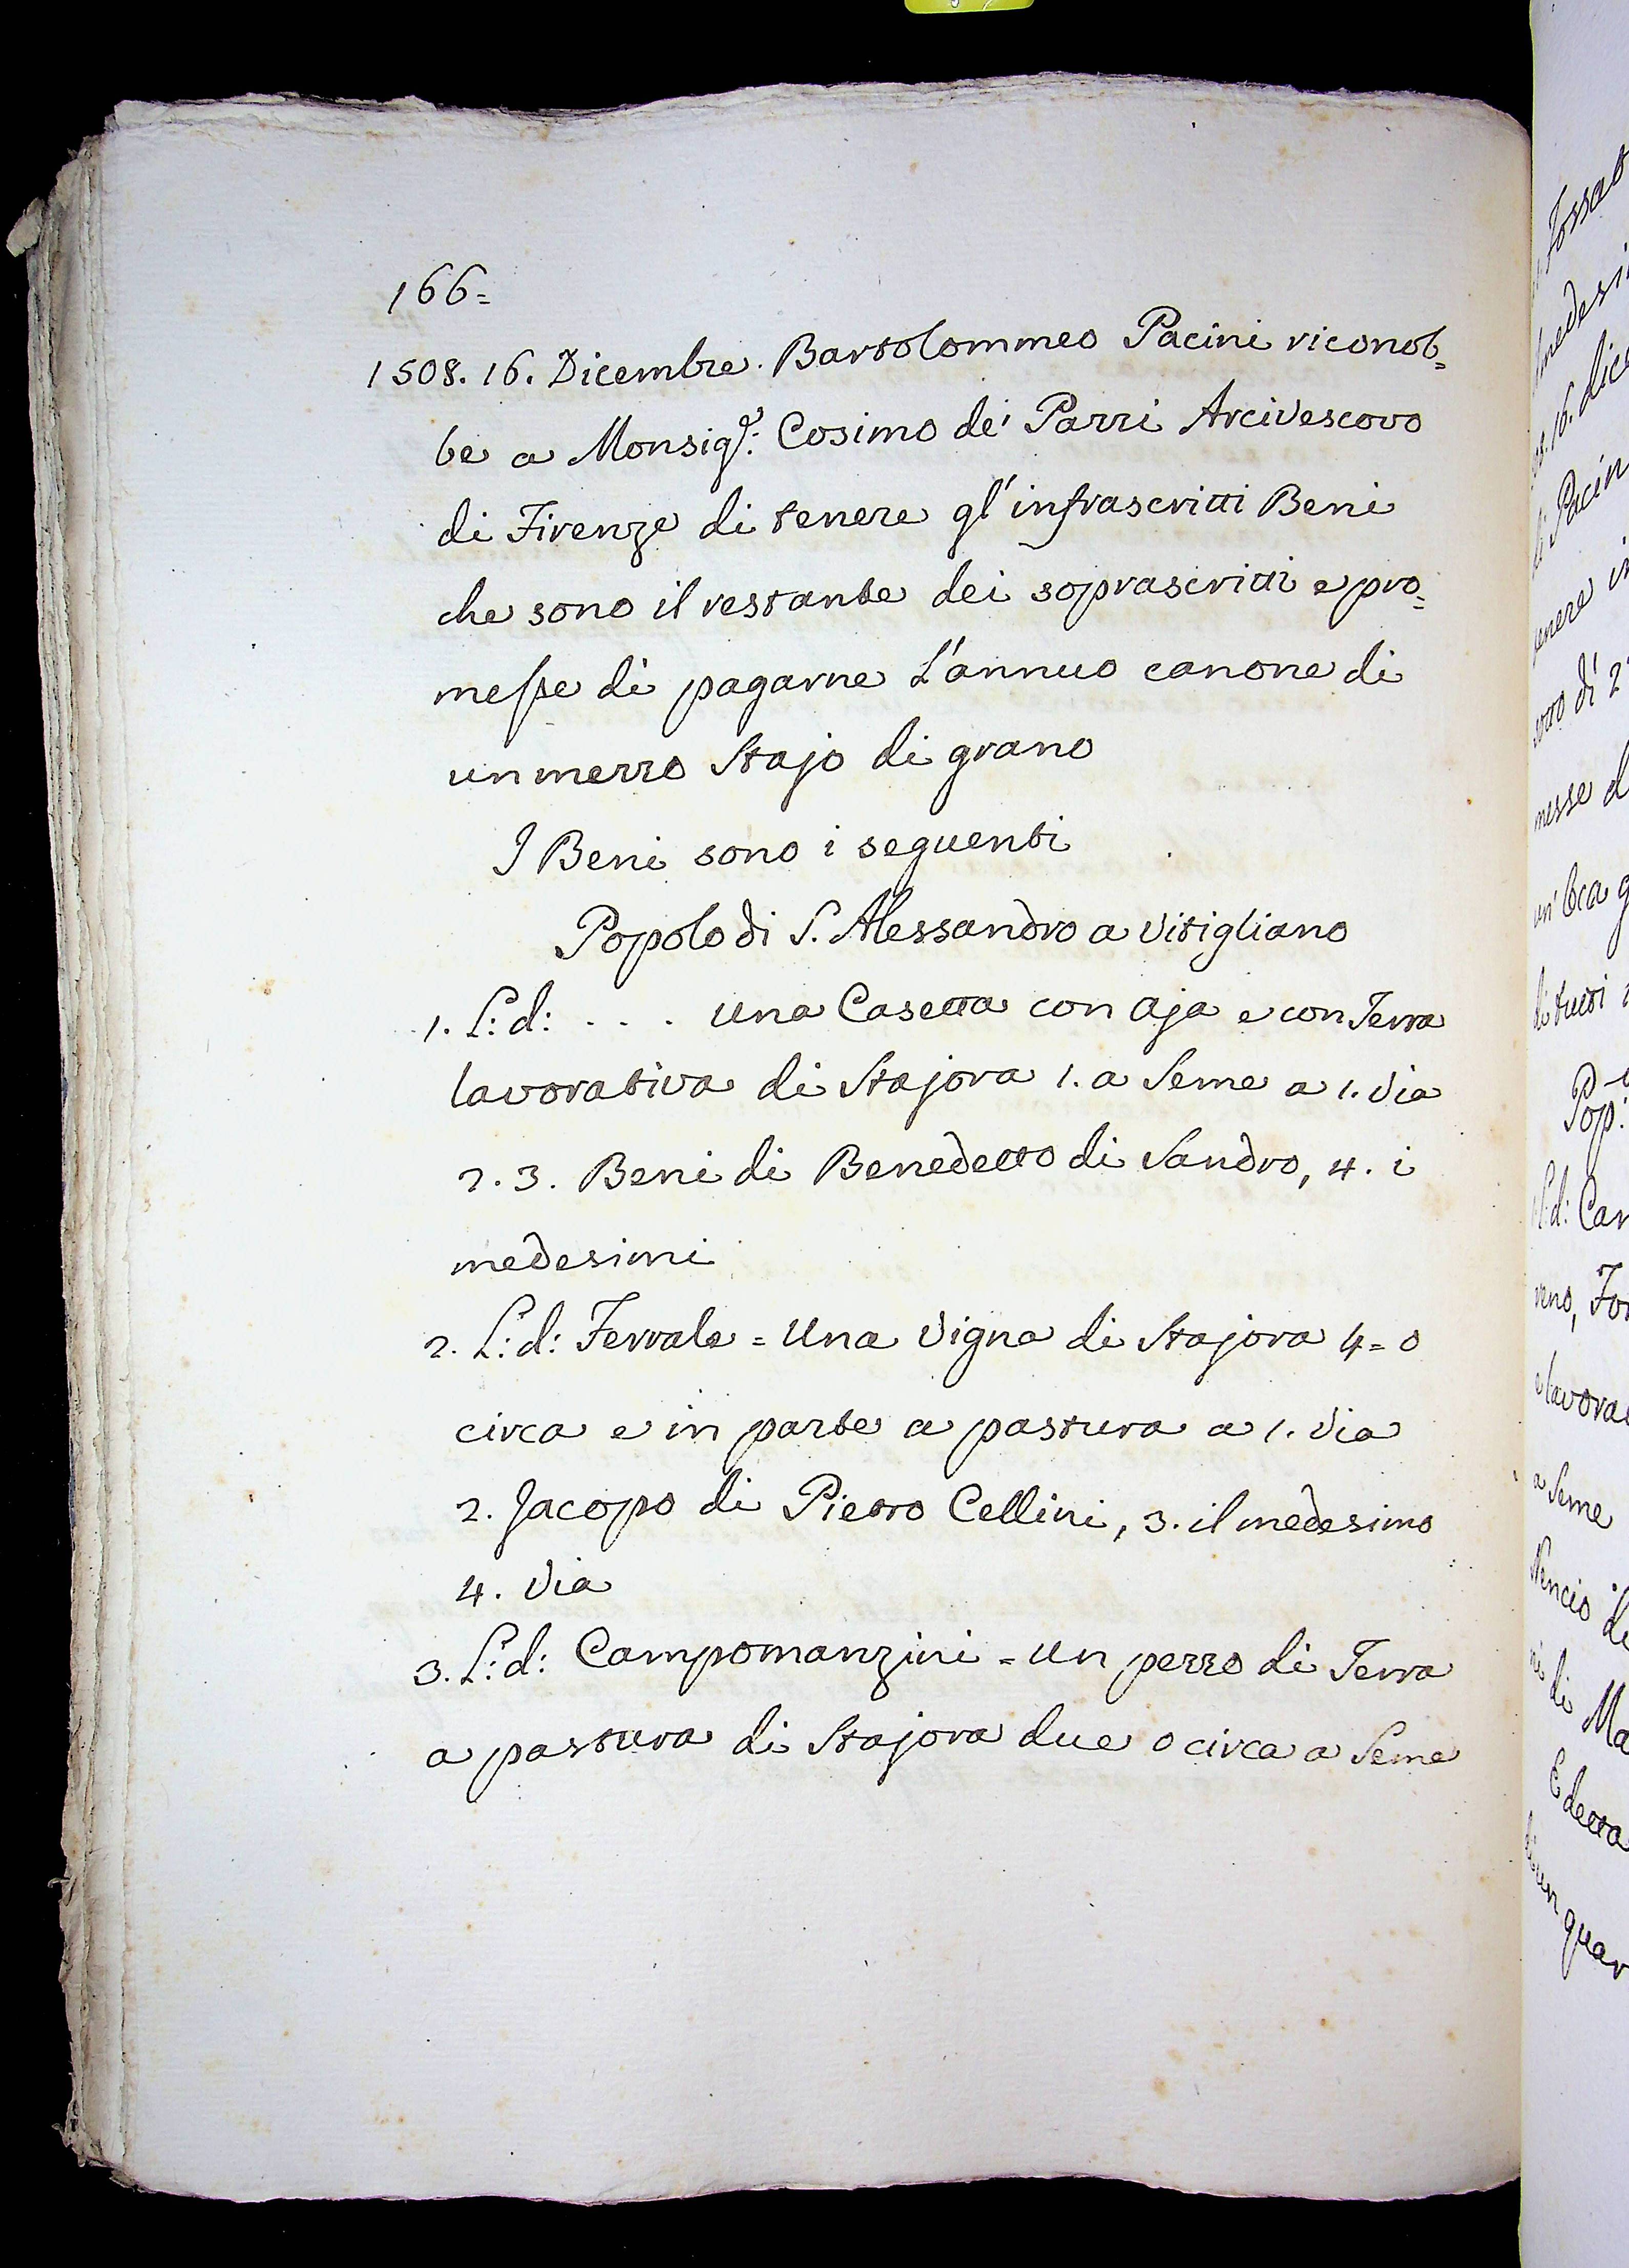 166=
1508. 16. Dicembre. Bartolommeo Pacini riconob=
be a Monsig.r: Cosimo de' Pazzi Arcivescovo
di Firenze di tenere gl'infrascritti Beni
che sono il restante dei soprascritti e pro=
messe di pagarne L'annuo canone di
un mezzo Stajo di grano
I Beni sono i seguenti
Popolo di S. Alessandro a Vitigliano
1. L: d: . . . . Una Casetta con aja e con Terra
lavorativa di Stajora 1. a Seme a 1. Via
2. 3. Beni di Benedetto di Sandro, 4. i
medesimi
2. L: d: Ferrale = Una Vigna di Stajora 4 = o
circa e in parte a pastura a 1. Via
2. Jacopo di Pietro Cellini, 3. il medesimo
4. Via
3. L: d: Campomanzini = Un pezzo di Terra
a pastura di Stajora due o circa a Seme